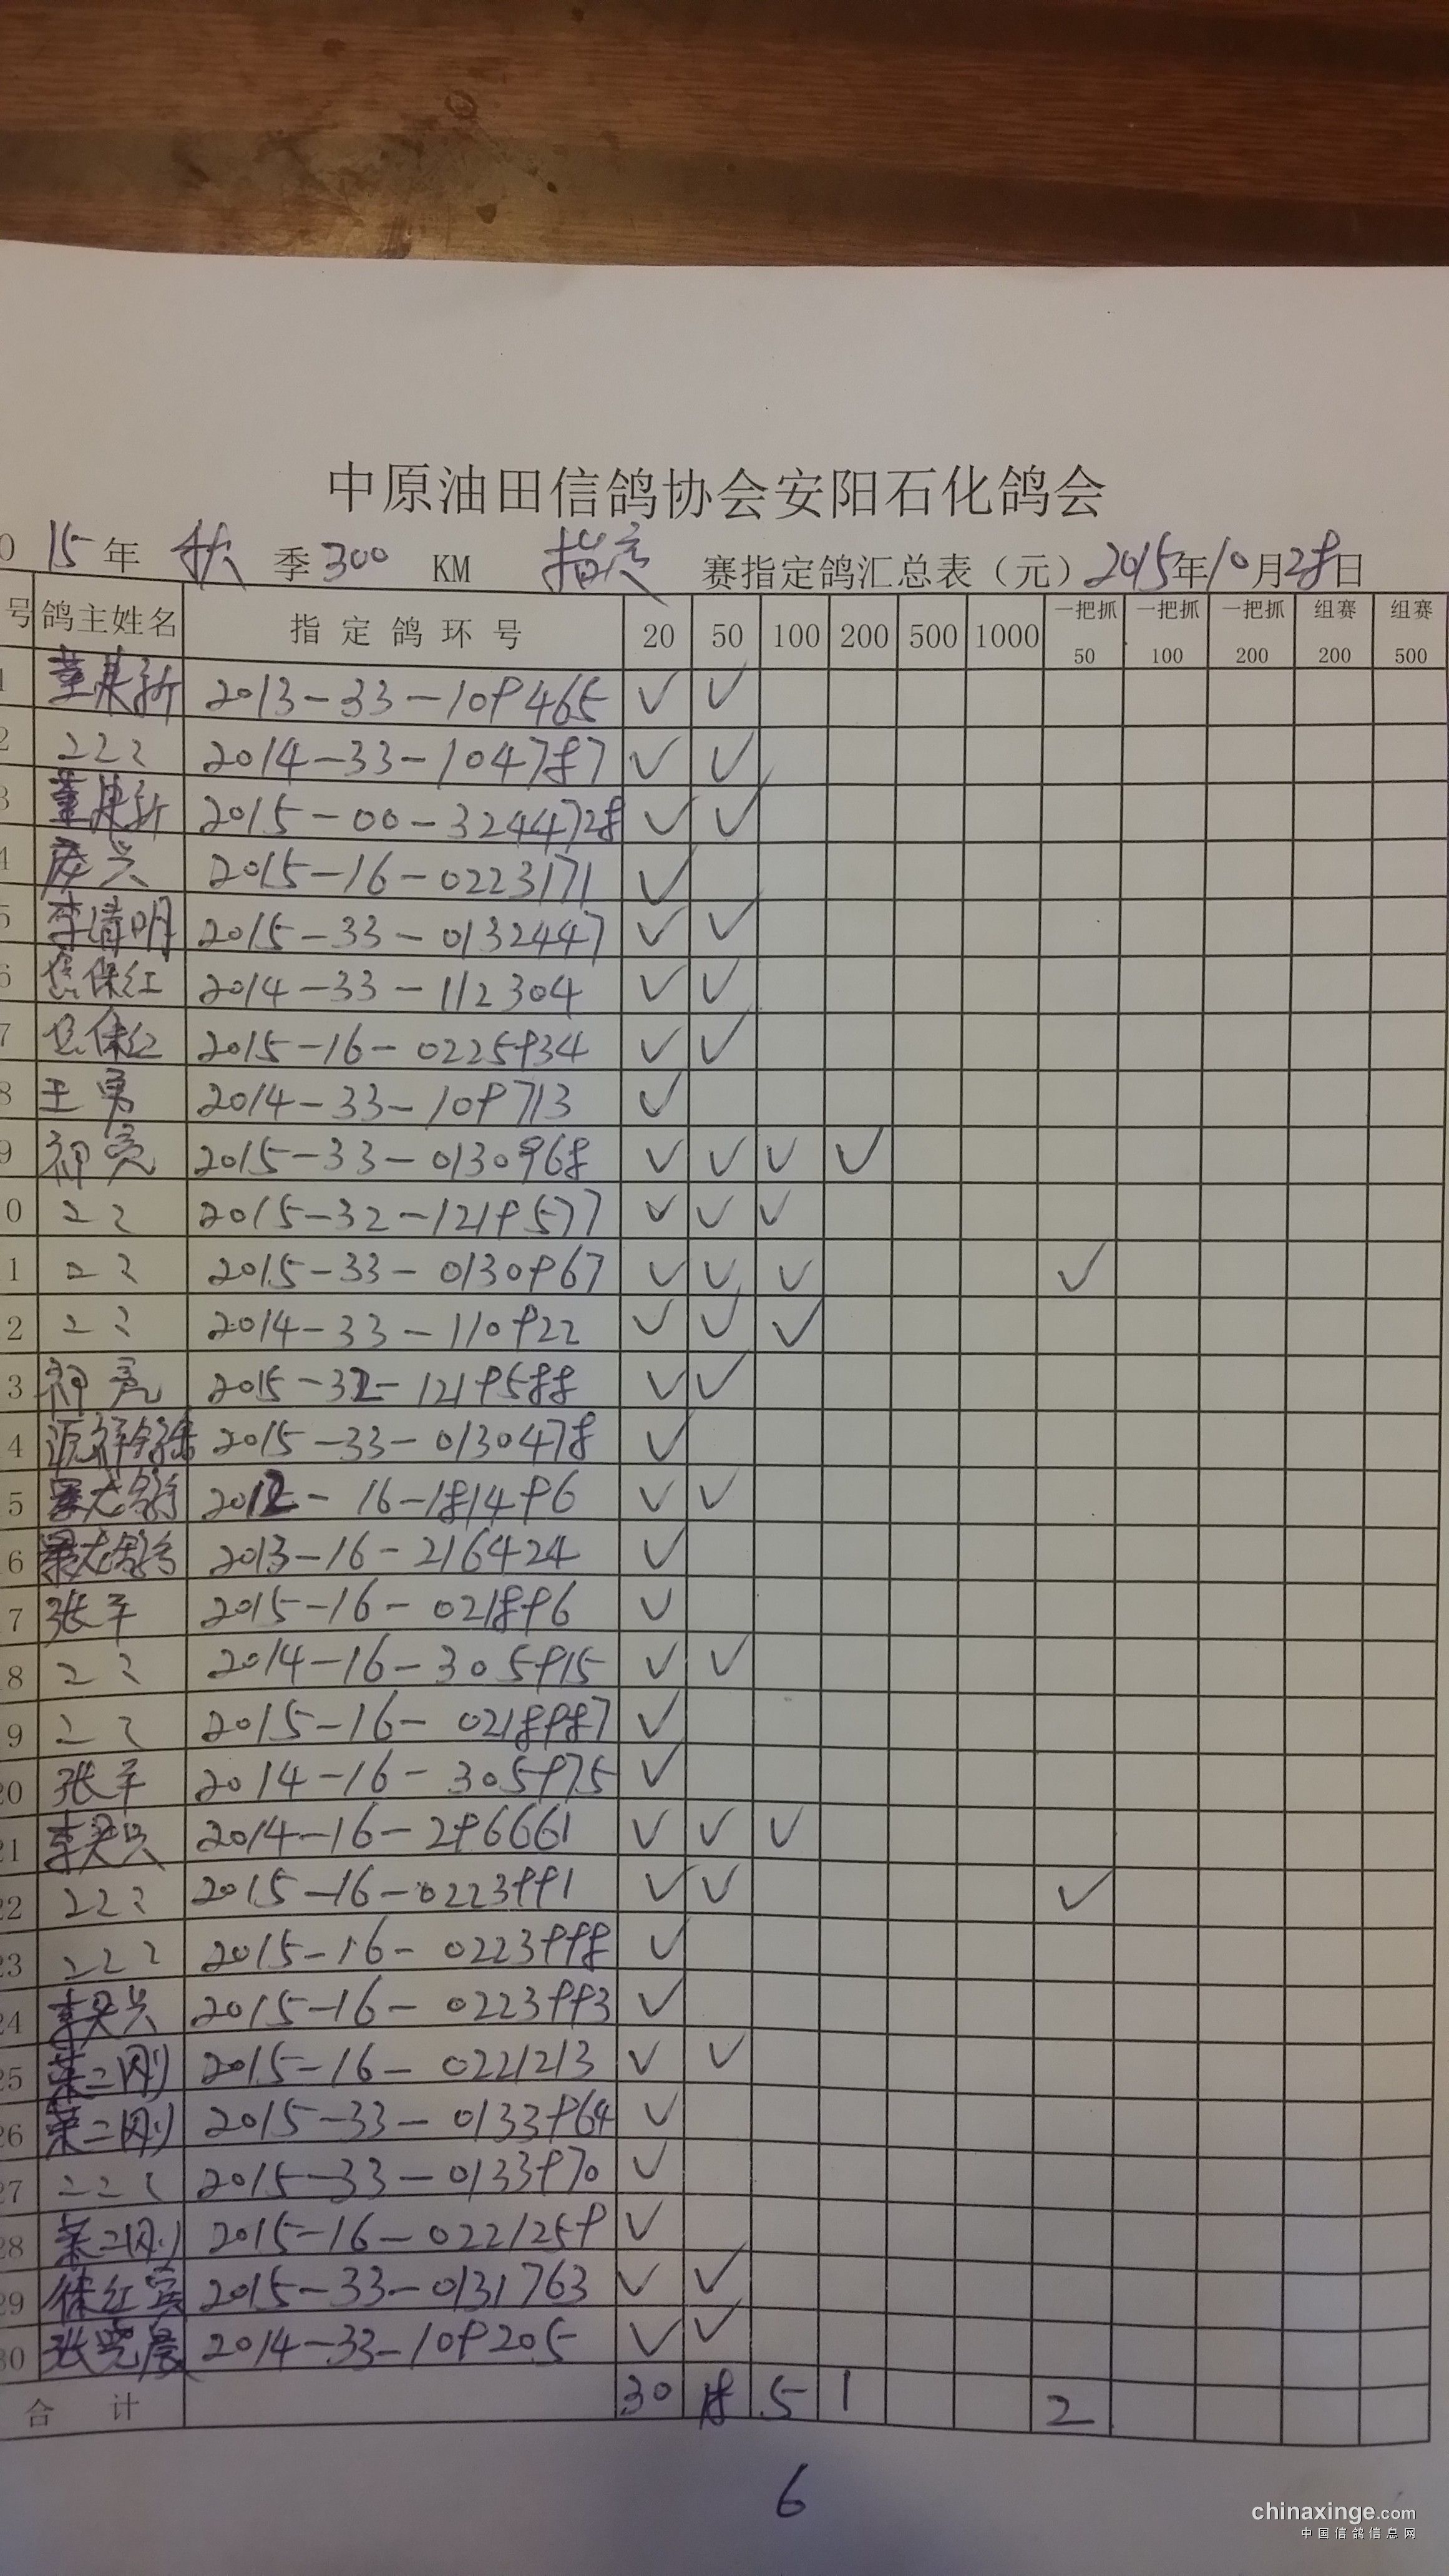 中原油田信鸽协会安阳石化鸽会
0 15年 秋 季 300 KM 指定 赛指定鸽汇总表（元）2015年10月28日
号 鸽主姓名 指定鸽环号 20 50 100 200 500 1000 一把抓50 一把抓100 一把抓200 组赛200 组赛500
1 2013-33-109465 ✓ ✓
2 2014-33-104787 ✓ ✓
3 2015-00-3244728 ✓ ✓
4 2015-16-0223171 ✓
5 李清明 2015-33-0132447 ✓ ✓
6 焦保红 2014-33-112304 ✓ ✓
7 焦保红 2015-16-0225934 ✓ ✓
8 王勇 2014-33-109713 ✓
9 2015-33-0130968 ✓ ✓ ✓ ✓
0 2015-32-1219577 ✓ ✓ ✓
1 2015-33-0130967 ✓ ✓ ✓ ✓
2 2014-33-110922 ✓ ✓ ✓
3 2015-32-1219588 ✓ ✓
4 2015-33-0130478 ✓
5 2012-16-181496 ✓ ✓
6 2013-16-216424 ✓
7 张军 2015-16-021896 ✓
8 2014-16-305915 ✓ ✓
9 2015-16-0218987 ✓
20 张军 2014-16-305975 ✓
21 2014-16-296661 ✓ ✓ ✓
22 2015-16-0223991 ✓ ✓ ✓
23 2015-16-0223998 ✓
24 2015-16-0223993 ✓
25 2015-16-0221213 ✓ ✓
26 2015-33-0133964 ✓
27 2015-33-0133970 ✓
28 2015-16-0221259 ✓
29 2015-33-0131763 ✓ ✓
30 张晓晨 2014-33-109205 ✓ ✓
合计 30 18 5 1 2
6
chinaxinge.com
中国信鸽信息网